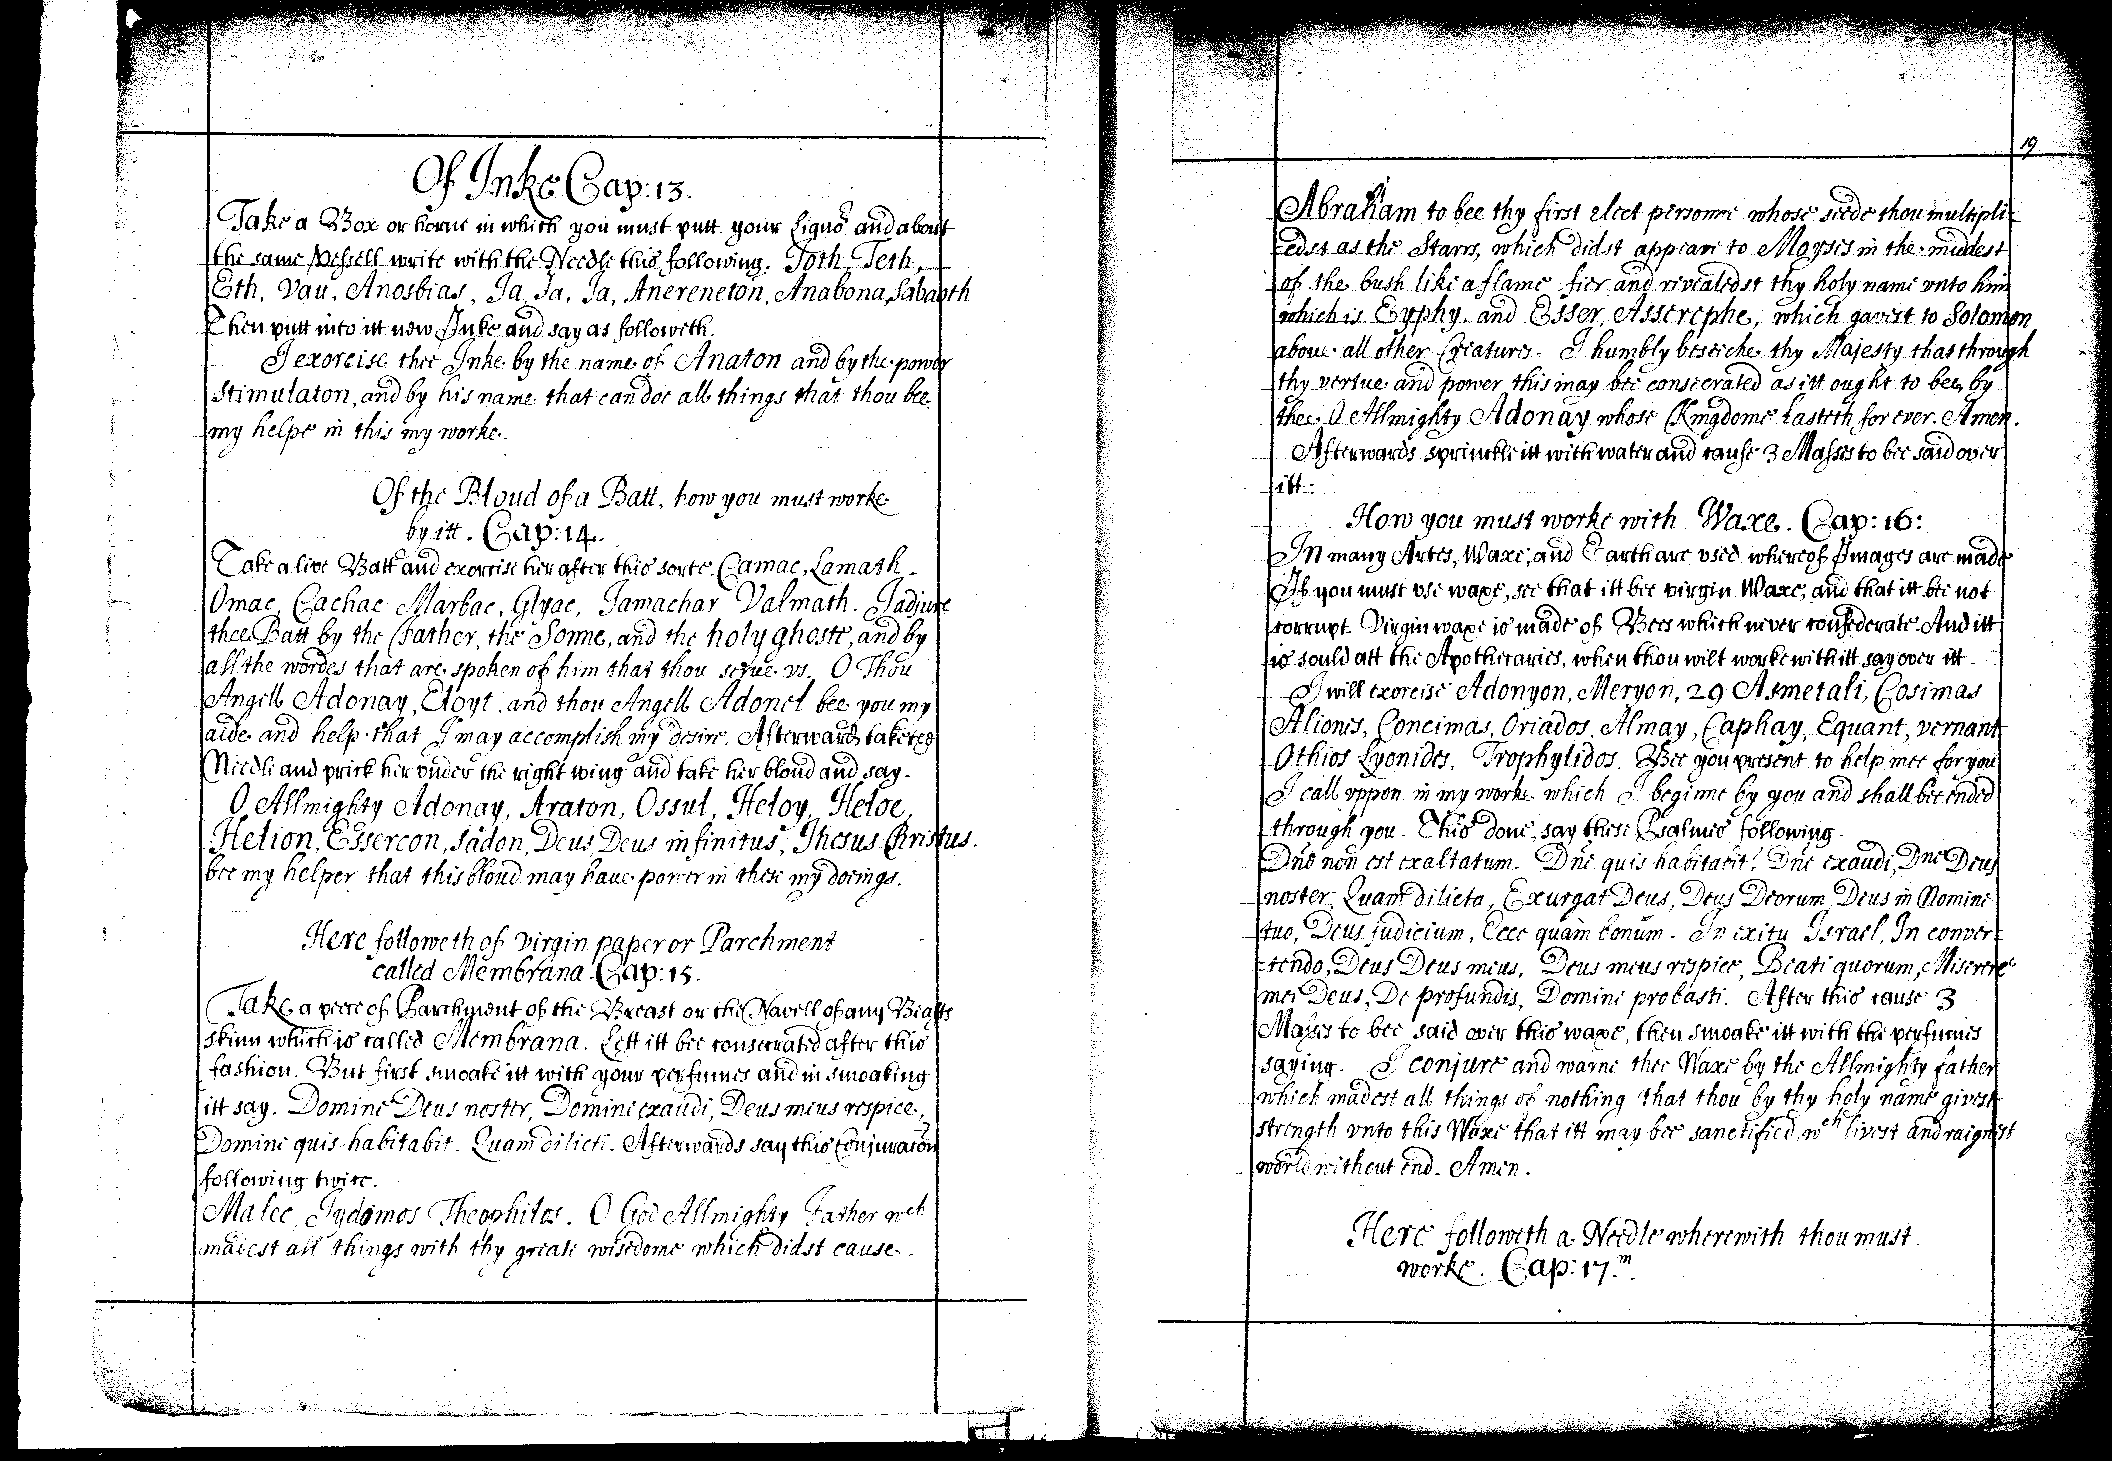 Of Inke Cap: 13.
Take a Box or horne in which you must putt your Liquor and about
the same Vessell write with the Needle this following. Joth, Teth,
Eth, Vau, Anosbias, Ja, Ja, Ja, Anereneton, Anabona, Sabaoth
Then putt into itt new Inke and say as followeth.
I exorcise thee Inke by the name of Anaton and by the power
Stimulaton, and by his name that can doe all things that thou bee
my helpe in this my worke.
Of the Bloud of a Batt, how you must worke
by itt. Cap: 14.
Take a live Batt and exorcise her after this sorte. Camac, Lamath.
Omac, Cachac Marbac, Glyac, Jamachar Valmath. I adjure
thee Batt by the Father, the Sonne, and the holy ghoste, and by
all the wordes that are spoken of him that thou serue vs. O Thou
Angell Adonay, Eloyt. and thou Angell Adonel bee you my
aide and help that I may accomplish my desire. Afterwards take ye
Needle and prick her vnder the right wing and take her bloud and say.
O Allmighty Adonay, Araton, Ossul, Heloy, Heloe,
Helion, Essercon, Sadon, Deus, Deus infinitus, Jhesus Christus.
bee my helper that this bloud may haue power in these my doeings.
Here followeth of virgin paper or Parchment
called Membrana. Cap: 15.
Take a peece of Parchment of the Breast or the Navell of any Beasts
skinn which is called Membrana. Lett itt bee consecrated after this
fashion. But first smoake itt with your perfumes and in smoaking
itt say. Domine Deus noster, Domine exaudi, Deus meus respice,
Domini quis habitabit. Quam dilicti. Afterwards say this Conjuration
following twice.
Malec, Jydomos Theophilos. O God Allmighty Father wch
madest all things with thy greate wisedome which didst cause
19
Abraham to bee thy first elect personne whose seede thou multipli-
-edst as the Starrs, which didst appeare to Moyses in the middest
of the bush like a flame fier and revealedst thy holy name vnto him
which is Eyphy. and Esser, Asserephe, which gavest to Solomon
aboue all other Creatures. I humbly beseeche thy Majesty that through
thy vertue and power this may bee consecrated as itt ought to bee, by
thee O Allmighty Adonay whose Kingdome lasteth for ever. Amen.
Afterwards sprinckle itt with water and cause 3 Masses to bee said over
itt.
How you must worke with Waxe. Cap: 16:
In many Artes, Waxe, and Earth are vsed whereof Images are made
If you must vse waxe, see that itt bee virgin Waxe, and that itt bee not
corrupt. Virgin waxe is made of Bees which never confederate. And itt
is sould att the Apothecaries, when thou wilt worke with itt say over itt.
I will exorcise Adonyon, Meryon, 29 Asmetali, Cosimas
Aliones, Concimas, Oriados, Almay, Caphay, Equant, vernant
Othios Lyonides, Trophylidos. Bee you present to help mee for you
I call vppon in my worke which I beginne by you and shall bee ended
through you. This done, say these Psalmes following.
Dñe non est exaltatum. Dñe quis habitabit. Dñe exaudi, Dne Deus
noster, Quam dilicta, Exurgat Deus, Deus Deorum, Deus in Nomine
tuo, Deus judicium, Ecce quam bonum. In exitu Israel, In conver-
-tendo, Deus Deus meus, Deus meus respice, Beati quorum, Miserere
mei Deus, De profundis, Domine probasti. After this cause 3
Masses to bee said over this waxe, then smoake itt with the perfumes
saying. I conjure and warne thee Waxe by the Allmighty father
which madest all things of nothing that thou by thy holy name givest
strength vnto this Waxe that itt may bee sanctified, wch livest and raignest
world without end. Amen.
Here followeth a Needle wherewith thou must
worke. Cap: 17.m